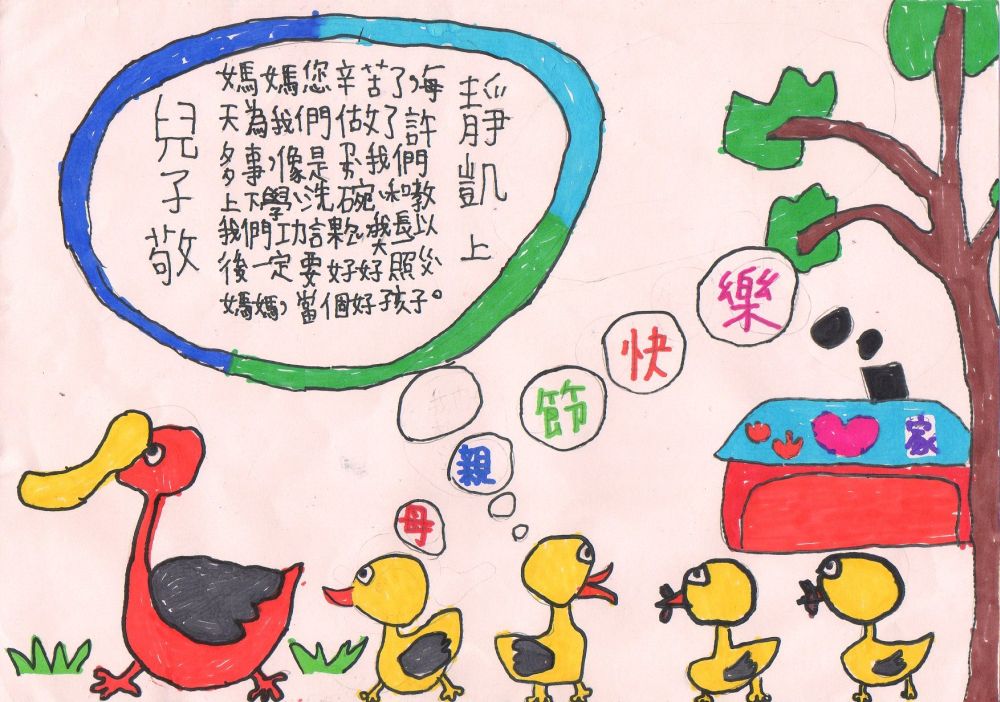 媽媽您辛苦了,每
天為我們做了許
多事,像是我們
上下學、洗碗、和教
我們功課,我長以
後一定要好好照
媽媽,當個好孩子。
兒子敬
靜凱上
母親節快樂
家